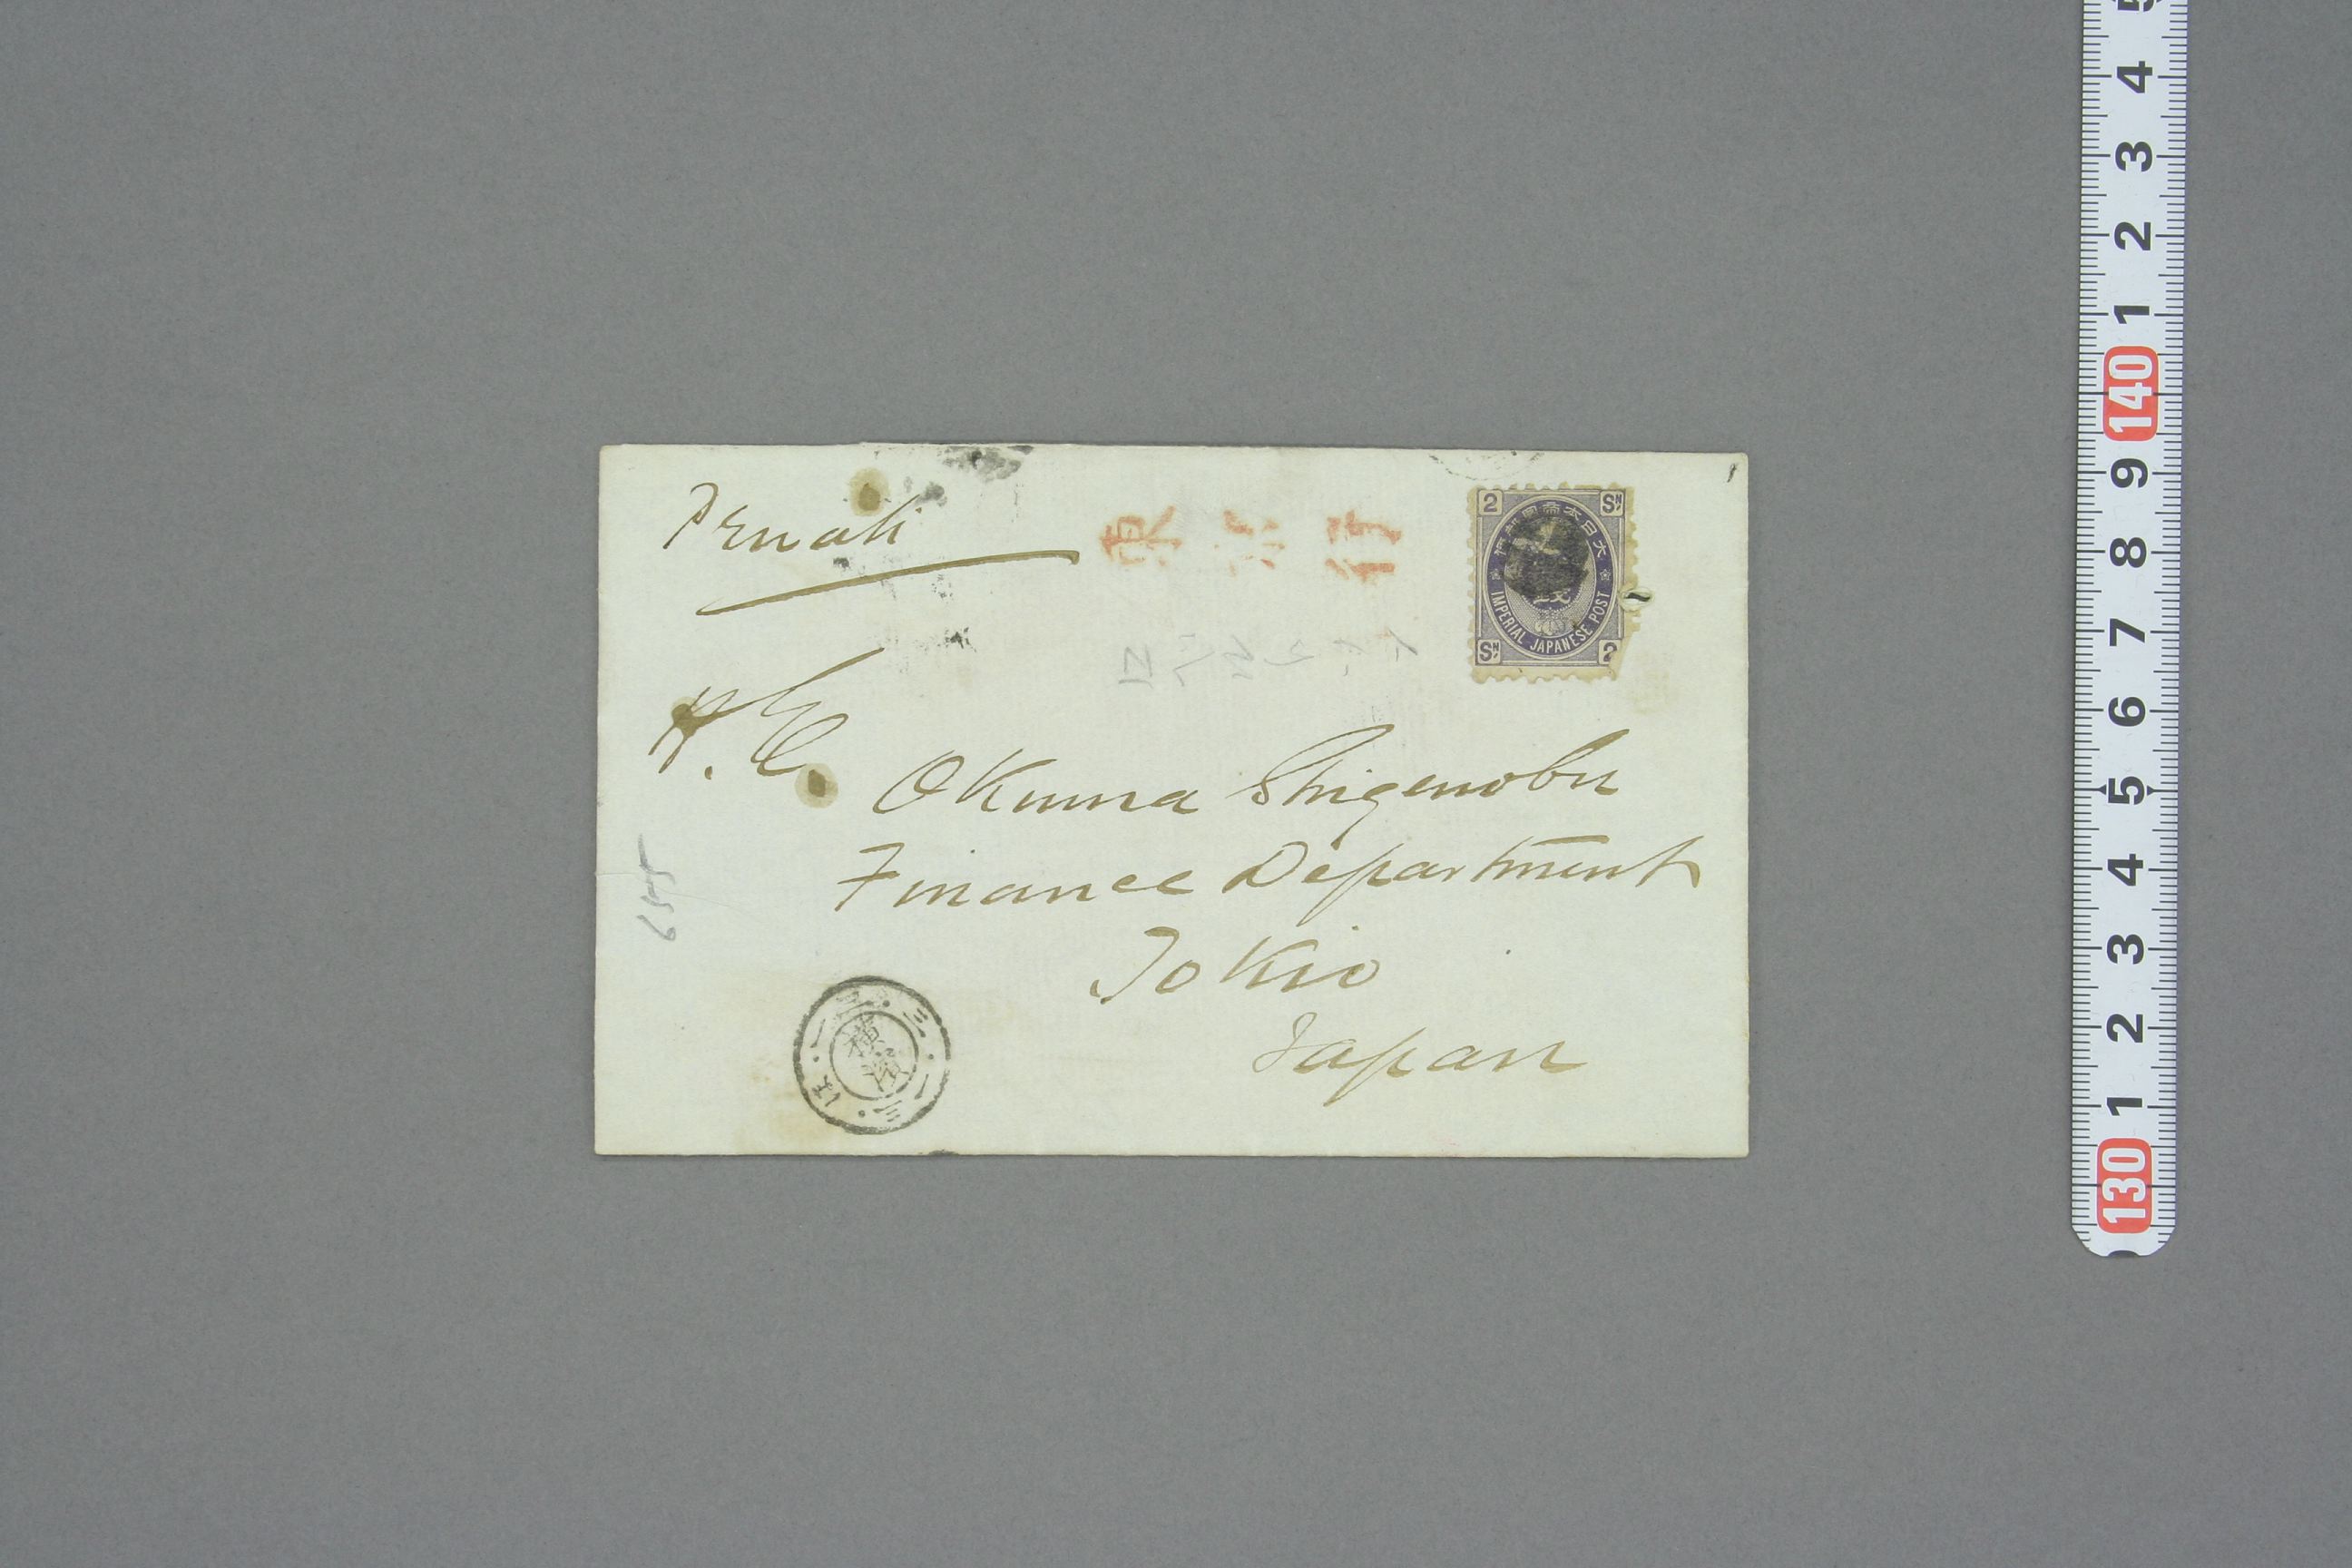 Private
東京行
2 SN
大日本帝國郵便
IMPERIAL JAPANESE POST
SN 2
H. E.
Okuma Shigenobu
Finance Department
Tokio
Japan
横濱
5
4
3
2
1
140
9
8
7
6
5
4
3
2
1
130